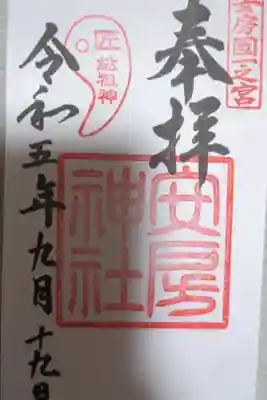 安房国一之宮
奉拝
安房
神社
匠総祖神
令和五年九月十九日